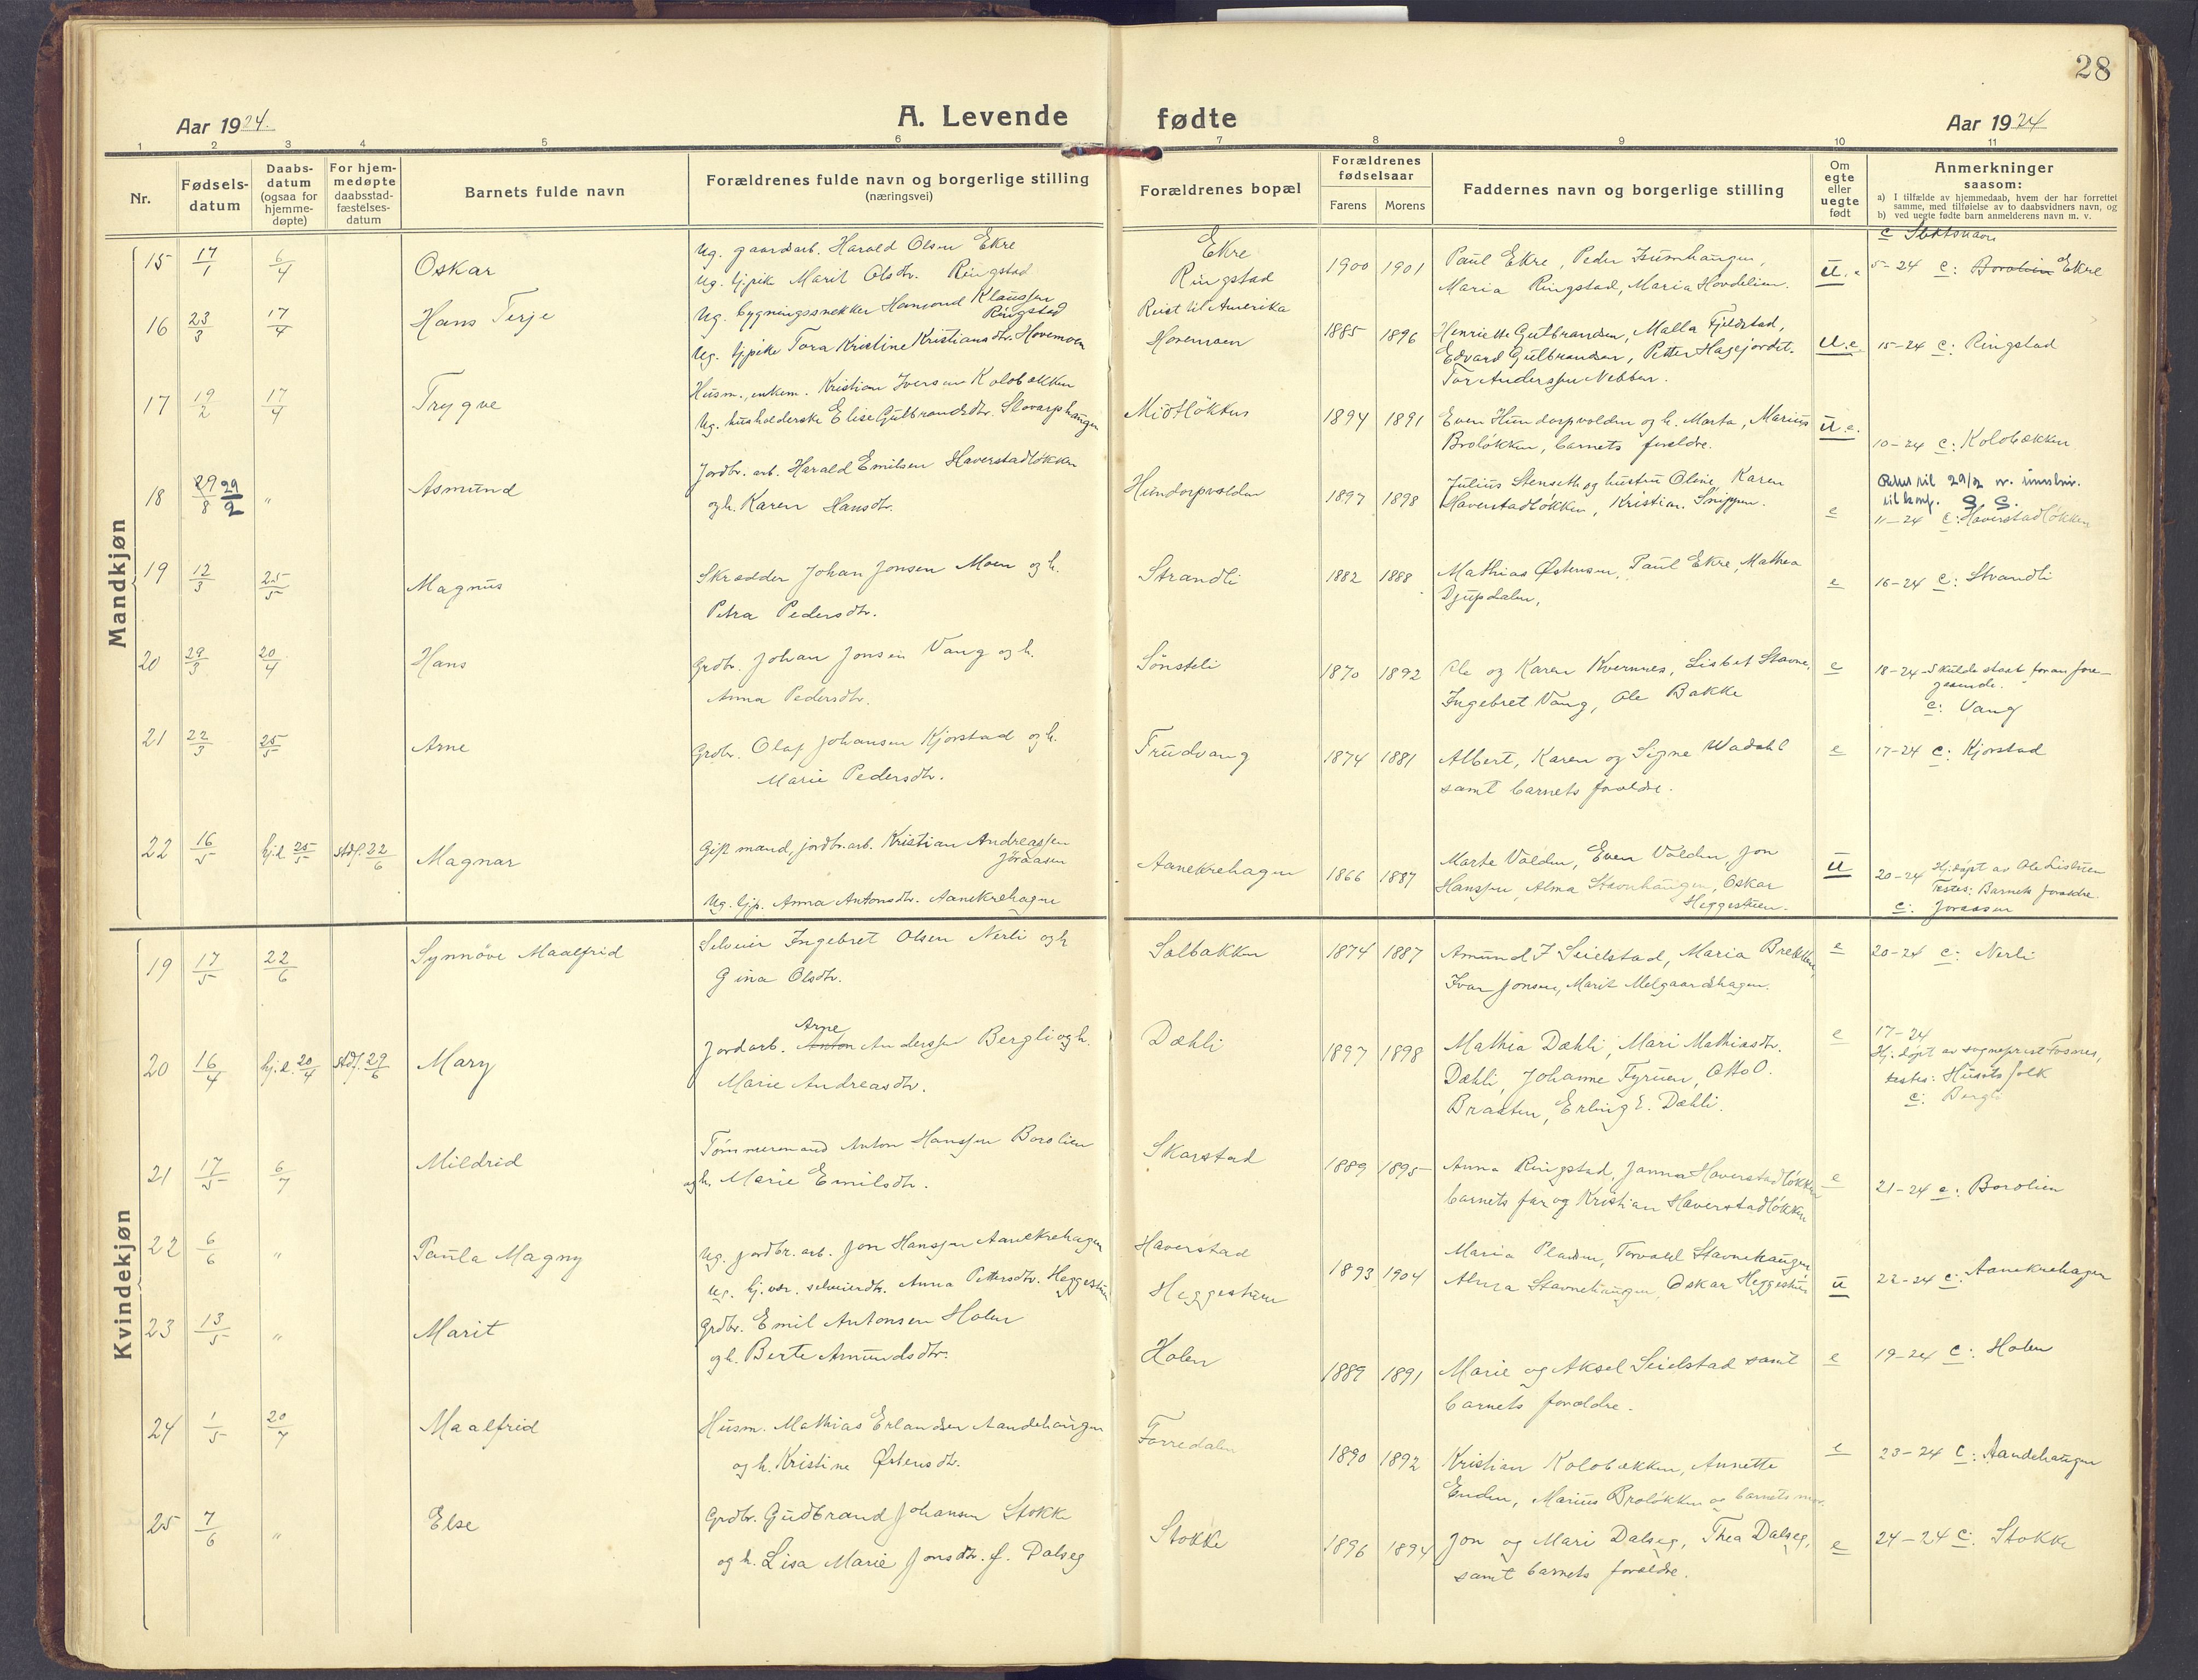 28
Aar 1924.
A. Levende fødte
Aar 1924
1 2 3 4 5 6 7 8 9 10 11
Nr.
Fødsels-
datum
Daabs-
datum
(ogsaa for
hjemme-
døpte)
For hjem-
medøpte
daabsstad-
fæstelses-
datum
Barnets fulde navn
Forældrenes fulde navn og borgerlige stilling
(næringsvei)
Forældrenes bopæl
Forældrenes
fødselsaar
Farens Morens
Faddernes navn og borgerlige stilling
Om
egte
eller
uegte
født
Anmerkninger
saasom:
a) I tilfælde av hjemmedaab, hvem der har forrettet
samme, med tilføielse av to daabsvidners navn, og
b) ved uegte fødte barn anmelderens navn m. v.
Mandkjøn
c Slektsnavn
15 17/1 6/4 Oskar
Ug. gaardsarb. Harald Olsen Ekre
Ug. tj.pike Marit Olsdtr. Ringstad
Ekre
Ringstad
1900 1901
Paul Ekre, Peder
Maria Ringstad, Maria Hovdelien.
u.e
5-24 c: Borolien Ekre
16 23/3 17/4 Hans Terje
Ug. bygningssnekker Hamond Klaussen
Ringstad
Ug. tj.pike Tora Kristine Kristiansdtr. Hovemoen
Reist til Amerika
Hovemoen
1885 1896
Henriette Gulbrandsen, Malla Fjeldstad,
Edvard Gulbrandsen, Petter Hagejordet.
Tor Anderssen Nebben.
u.e.
15-24 c: Ringstad
17 19/2 17/4 Trygve
Husm., enkem. Kristian Iversen Kolobækken
Ug. husholderske Elise Gulbrandsdtr. Slovarpshaugen
Midtløkken
1894 1891
Even Hundorpvolden og h. Marta, Marius
Broløkken, barnets foreldre.
u.e.
10-24 c: Kolobækken
18 29/8 29/2 " Asmund
Jordbr. arb. Harald Emilsen Haverstadløkken
og h. Karen Hansdtr.
Hundorpvolden
1897 1898
Julius Stenseth og hustru Oline, Karen
Haverstadløkken, Kristian Snippen.
e
Rettet til 29/2
til konf.
11-24 c: Haverstadløkken
19 12/3 25/5 Magnus
Skrædder Johan Jonsen Moen og h.
Petra Pedersdtr.
Strandli
1882 1888
Mathias Østensen, Paul Ekre, Mathea
Djupdalen,
e
16-24 c: Strandli
20 29/3 20/4 Hans
Grdbr. Johan Jonsen Vang og h.
Anna Pedersdtr.
Sønsteli
1870 1892
Ole og Karen Kvernnes, Lisbet Stavne,
Ingebret Vang, Ole Bakke
e
18-24 Skulde staat foran fore-
gaaende.
c: Vang
21 22/3 25/5 Arne
Grdbr. Olaf Johansen Kjorstad og h.
Marie Pedersdtr.
Trudvang
1874 1881
Albert, Karen og Signe Wadahl
samt barnets foreldre.
e
17-24 c: Kjorstad
22 16/5 hj.d. 25/5 stdf. 22/6 Magnar
Gift mand, jordbr.arb. Kristian Andreassen
Jøraasen
Ug. tjp. Anna Antonsdtr. Aanekrehagen
Aanekrehagen
1866 1887
Marte Volden, Even Volden, Jon
Hanssen, Alma Stavnhaugen, Oskar
Heggestuen.
u
20-24 Hj.døpt av Ole Listuen
Testes: Barnets forældre.
c: Joraasen
Kvindekjøn
19 17/5 22/6 Synnöve Maalfrid
Selveier Ingebret Olsen Nerli og h
Gina Olsdtr.
Solbakken
1874 1887
Amund I Seielstad, Maria Brekken,
Ivar Jonsen, Marit Melgaardshagen.
e
20-24 c: Nerli
20 16/4 hj.d. 20/4 stdf. 29/6 Mary
Arne
Jordarb. Anton Anderssen Bergli og h.
Marie Andreasdtr.
Dæhli
1897 1898
Mathea Dæhli, Mari Mathiasdtr.
Dæhli, Johanne Fyruen, Otto O.
Braaten, Erling E. Dæhli.
e
17-24
Hj. døpt av sogneprest Fosnes,
testes: Husets folk
c: Bergli
21 17/5 6/7 Mildrid
Tömmermand Anton Hanssen Borolien
og h. Marie Emilsdtr.
Skarstad
1889 1895
Anna Ringstad, Janna Haverstadløkken
barnets far og Kristian Haverstadløkken
e
21-24 c: Borolien
22 6/6 " Paula Magny
Ug. jordbr. arb. Jon Hanssen Aanekrehagen
Ug. hj.vær. selveierdtr. Anna Pettersdtr. Heggestuen
Haverstad
Heggestuen
1893 1904
Maria Pladsen, Torvald Stavnehaugen
Alma Stavnehaugen, Oskar Heggestuen
u
22-24 c: Aanekrehagen
23 13/5 " Marit
Grdbr. Emil Antonsen Holen
og h. Berte Amundsdtr.
Holen
1889 1891
Marie og Aksel Seielstad samt
barnets forældre.
e
19-24 c: Holen
24 1/5 20/7 Maalfrid
Husm. Mathias Erlandsen Aandehaugen
og h. Kristine Østensdtr.
Forredalen
1890 1892
Kristian Kolobækken, Annette
Enden, Marius Broløkken og barnets mor.
e
23-24 c: Aandehaugen
25 7/6 " Else
Grdbr. Gudbrand Johansen Stokke
og h. Lisa Marie Jonsdtr. f. Dalseg
Stokke
1896 1894
Jon og Mari Dalseg, Thea Dalseg,
samt barnets forældre.
e
24-24 c: Stokke